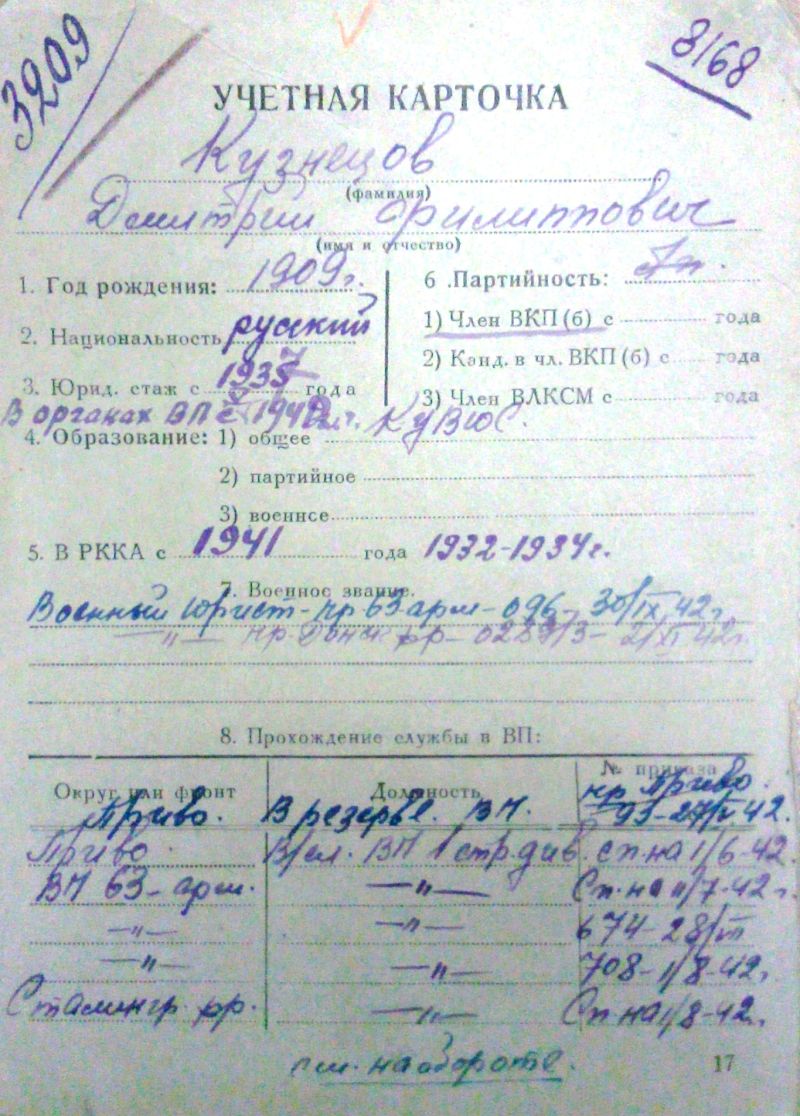 3209
8/68
УЧЕТНАЯ КАРТОЧКА
Кузнецов
(фамилия)
Дмитрий Филиппович
(имя и отчество)
1. Год рождения: 1909 г.
2. Национальность русский
3. Юрид. стаж с 1937 года
В органах ВП с 1942 г.
4. Образование: 1) общее КУВЮС.
2) партийное
3) военнсе
5. В РККА с 1941 года 1932-1934 г.
6 .Партийность:
1) Член ВКП (б) с года
2) Канд. в чл. ВКП (б) с года
3) Член ВЛКСМ с года
7. Военнос звание.
Военный юрист - пр 63 арм - 096 - 30/IX 42 г.
—"— пр. Донск фр - 0289/3 - 2/XI 42 г.
8. Прохождение службы в ВП:
Округ или фронт Должность № приказа
Приво. В резерве ВП. пр Приво.
93-27/V-42.
Приво. В/сл. ВП 1 стр. див. сп. на 1/6-42.
ВП 63- арм. —"— Сп. на 11/7-42 г.
—"— —"— 674- 28/VII
—"— —"— 708-1/8-42 г.
Сталингр. фр. —"— Сп. на 1/8-42 г.
см. на обороте.
17